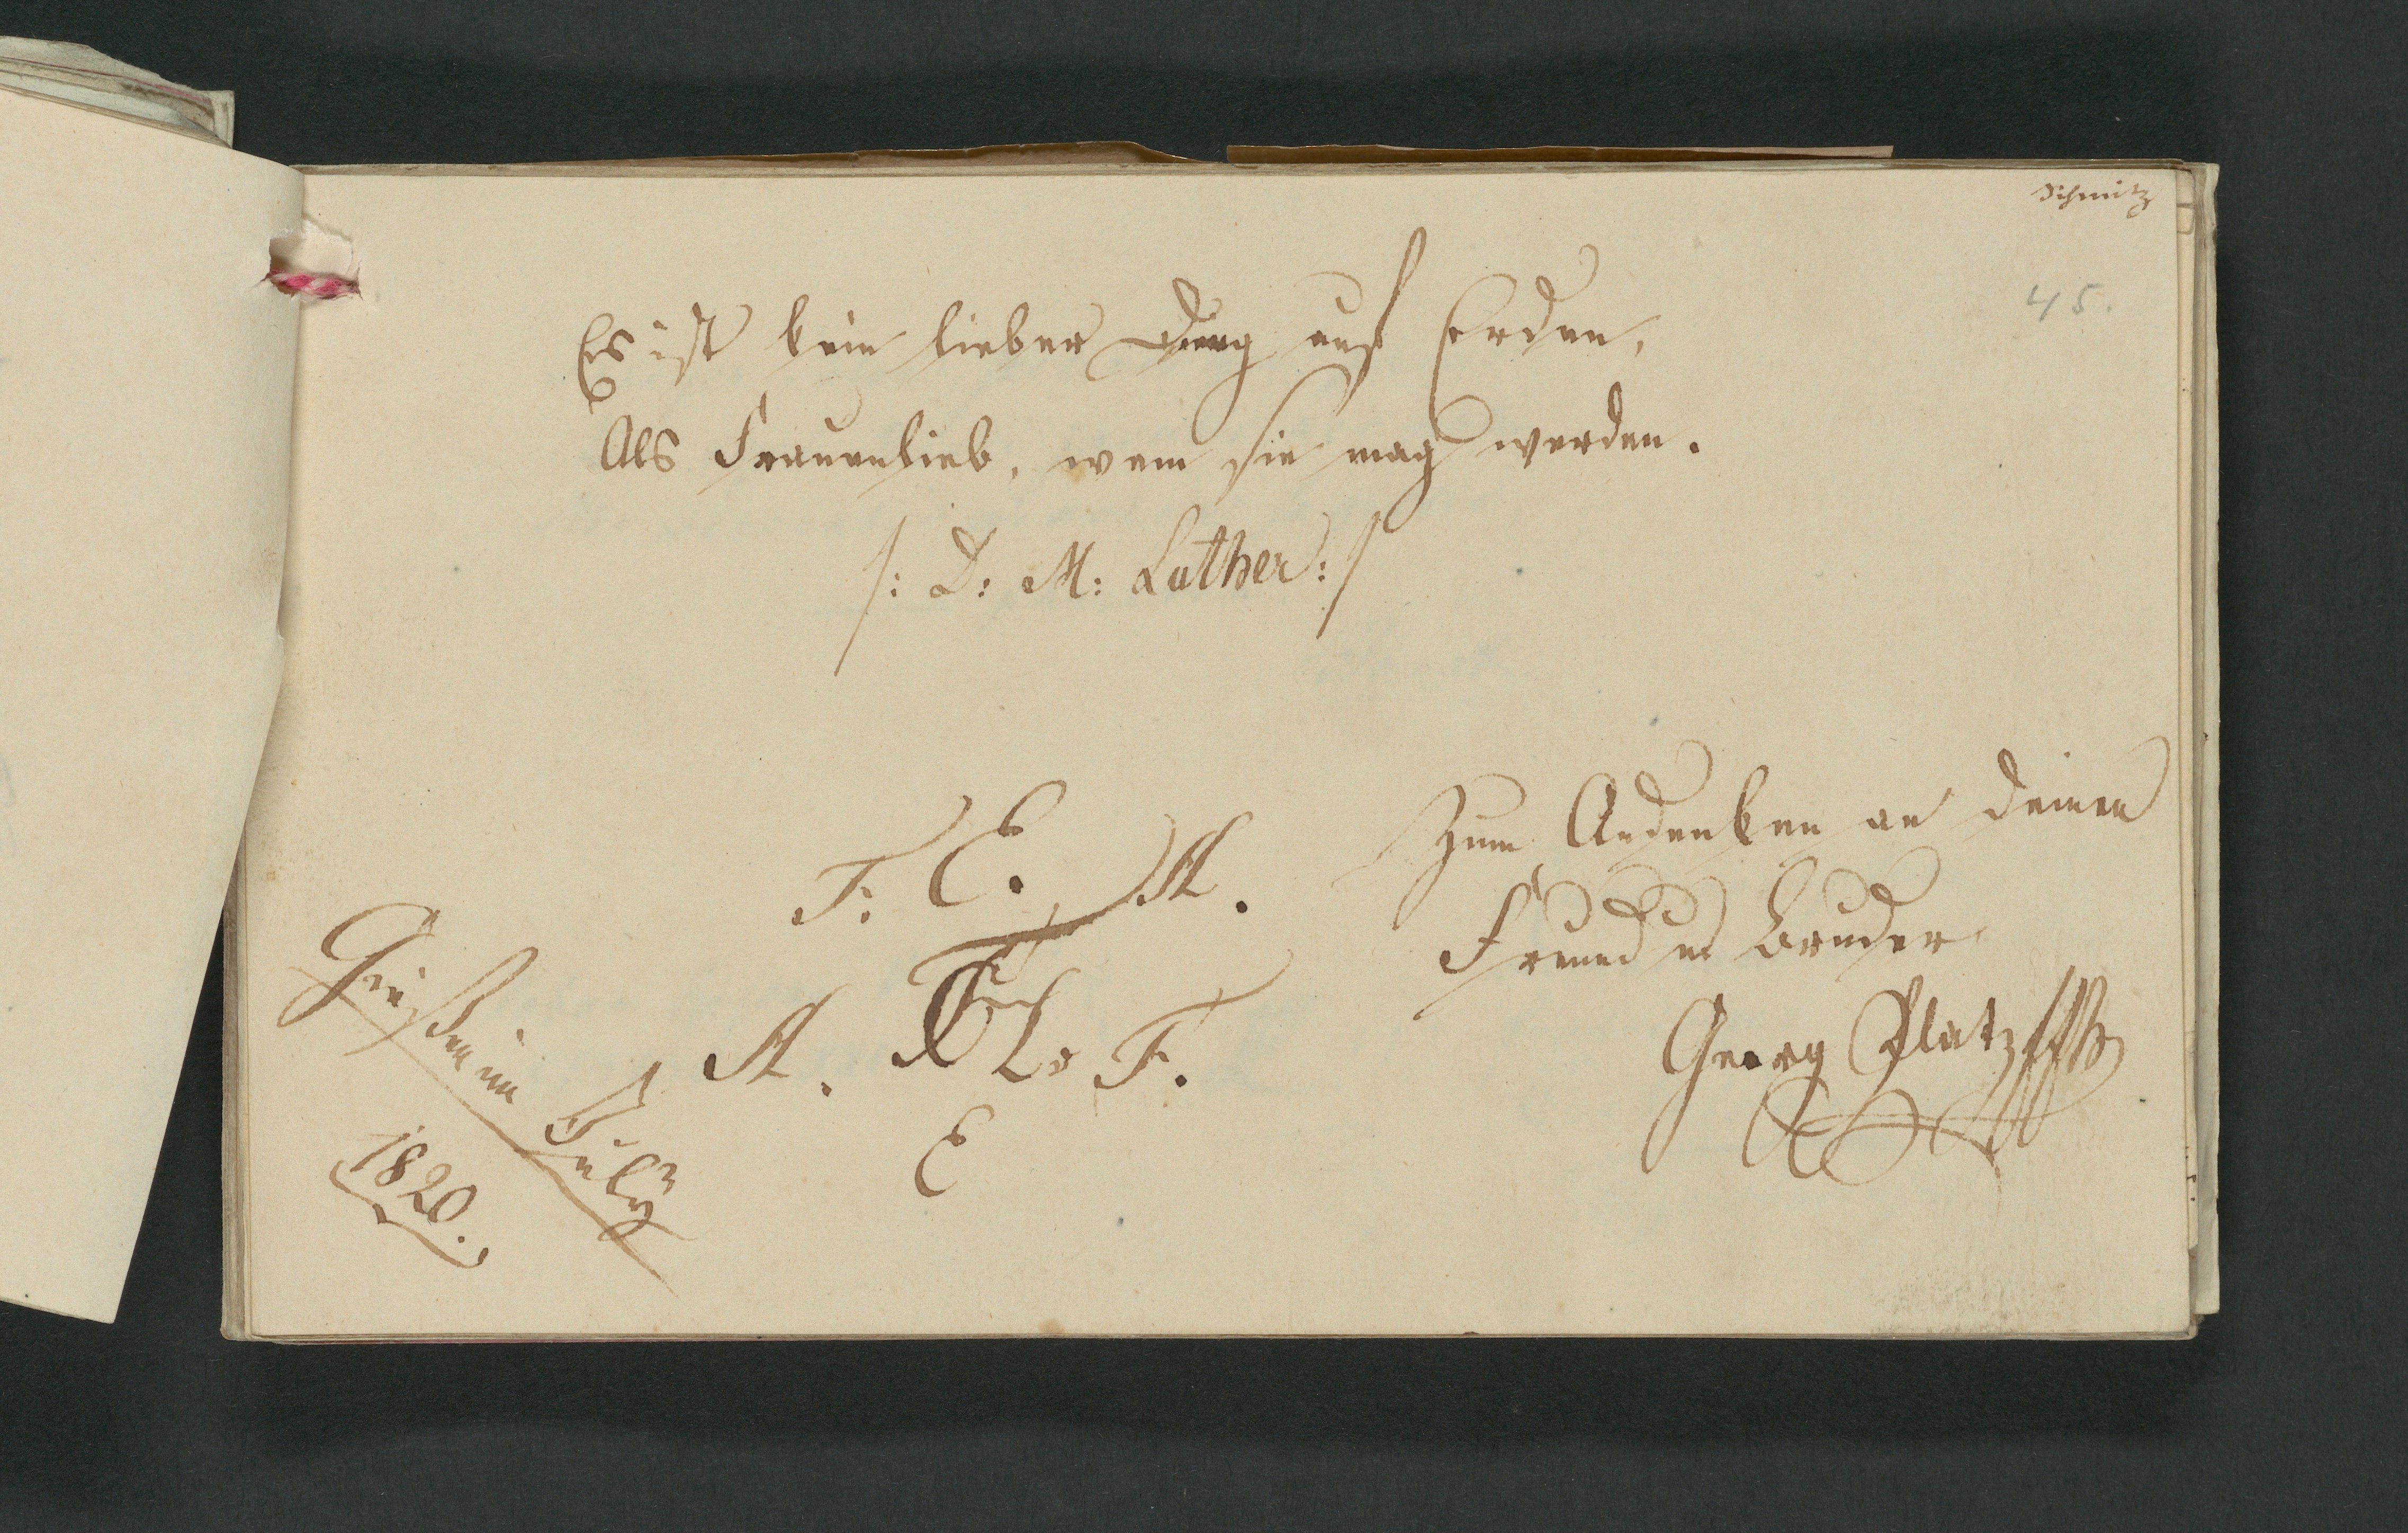 Schmitz
45.
Es ist kein lieber Ding auf Erden,
Als Frauenlieb, wem sie mag werden.
/: D: M: Luther: /
Zum Andenken an deinen
Freund u Bruder
Georg Platz
F. E. A.
A. F.
E
Gießen im
July
1820.